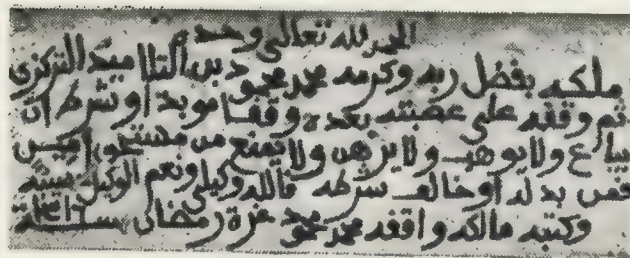 الحمد لله تعالى وحده
ملكه بفضل ربه وكرمه محمد محمود بن التلاميد التركزي
ثم وقفه على عصبته بعده وقفا مؤبدا وشرط ان لا
يباع ولا يوهب ولا يرهن ولا يمنع من مستحق امين
فمن بدله او خالف شرطه فالله وكيلي ونعم الوكيل
وكتبه مالكه واقفه محمد محمود غرة رمضان سنة ١٣١٦